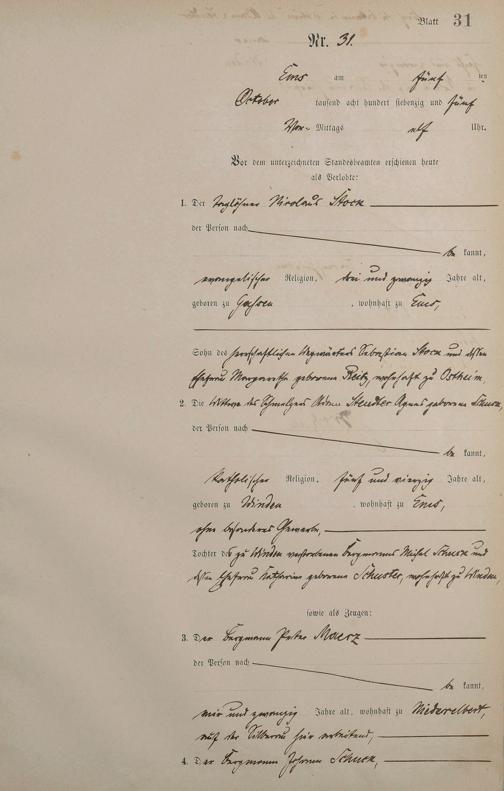 Blatt 31
Nr. 31.
Ems am fünf ten
October tausend acht hundert siebenzig und fünf
Vor- Mittags elf Uhr.
Vor dem unterzeichneten Standesbeamten erschienen heute
als Verlobte:
1. Der Taglöhner Nicolaus Stock
der Person nach
be kannt,
evangelischer Religion, drei und zwanzig Jahre alt,
geboren zu , wohnhaft zu Ems,
Sohn des herrschaftlichen Wegwärters Sebastian Stock und dessen
Ehefrau Margaretha geborene Reitz, wohnhaft zu Ostheim.
2. Die Wittwe des Schmelzers Adam Stendler Agnes geborene
der Person nach
be kannt,
katholischer Religion, fünf und vierzig Jahre alt,
geboren zu Winden , wohnhaft zu Ems,
ohne besonderes Gewerbe,
Tochter des zu Winden verstorbenen Bergmanns Michel und
dessen Ehefrau Katharina geborene Schuster, wohnhaft zu Winden,
sowie als Zeugen:
3. Der Bergmann Peter Maerz
der Person nach
be kannt,
und zwanzig Jahre alt, wohnhaft zu Niederelbert,
auf der Silberau hier arbeitend,
4. Der Bergmann Johann